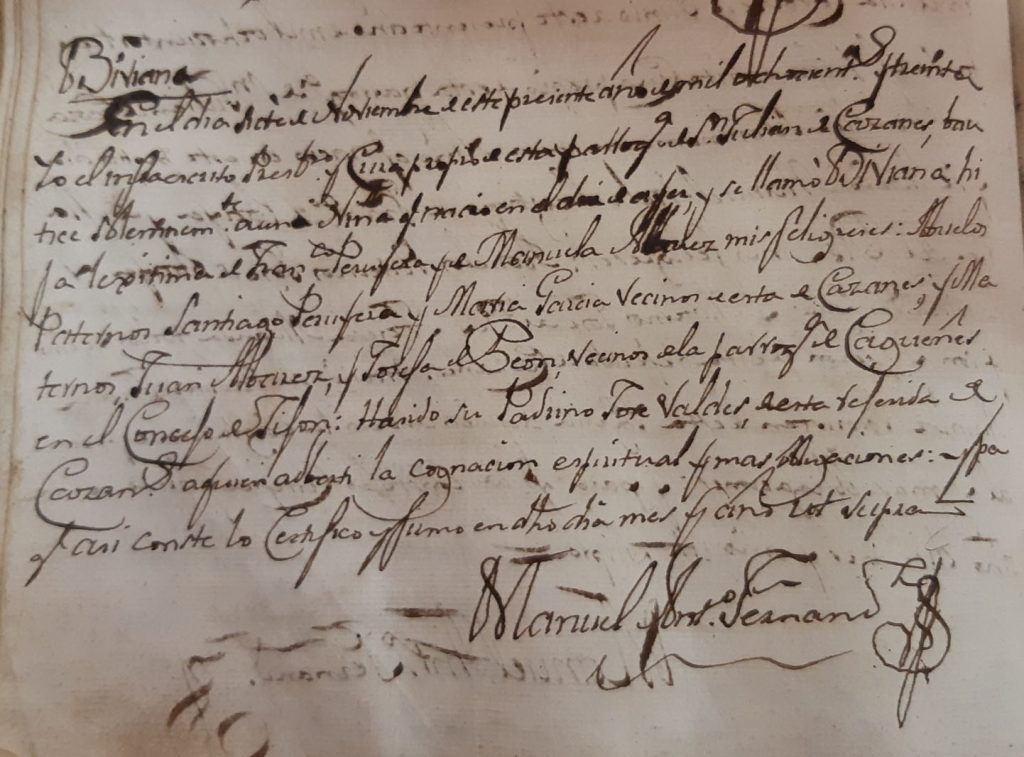 Biviana
En el dia siete de Noviembre de este presente año de mil ochocient.s y treinta
Yo el infraescrito Presb.ro y Cura propio de esta parroq.l de S.n Julian de Cazanes, bau
tice solemnem.te a una Niña q. nacio en el dia de ayer, y se llamò Biviana hi
ja lexitima de Fran.co y de Manuela Albarez mis feligreses: Abuelos
Paternos Santiago y Maria Garcia vecinos de esta de Cazanes, y Ma
ternos, Juan Albarez, y Teresa de Beon, vecinos de la parroq.l de
en el Concejo de : Ha sido su Padrino Jose Valdes de esta referida de
Cazan.s a quien adberti la cognacion espiritual y mas obligaciones: y pa
q. asi conste lo Certifico y firmo en dho dia mes y año ut supra
Manuel Ant.o Fernand.z